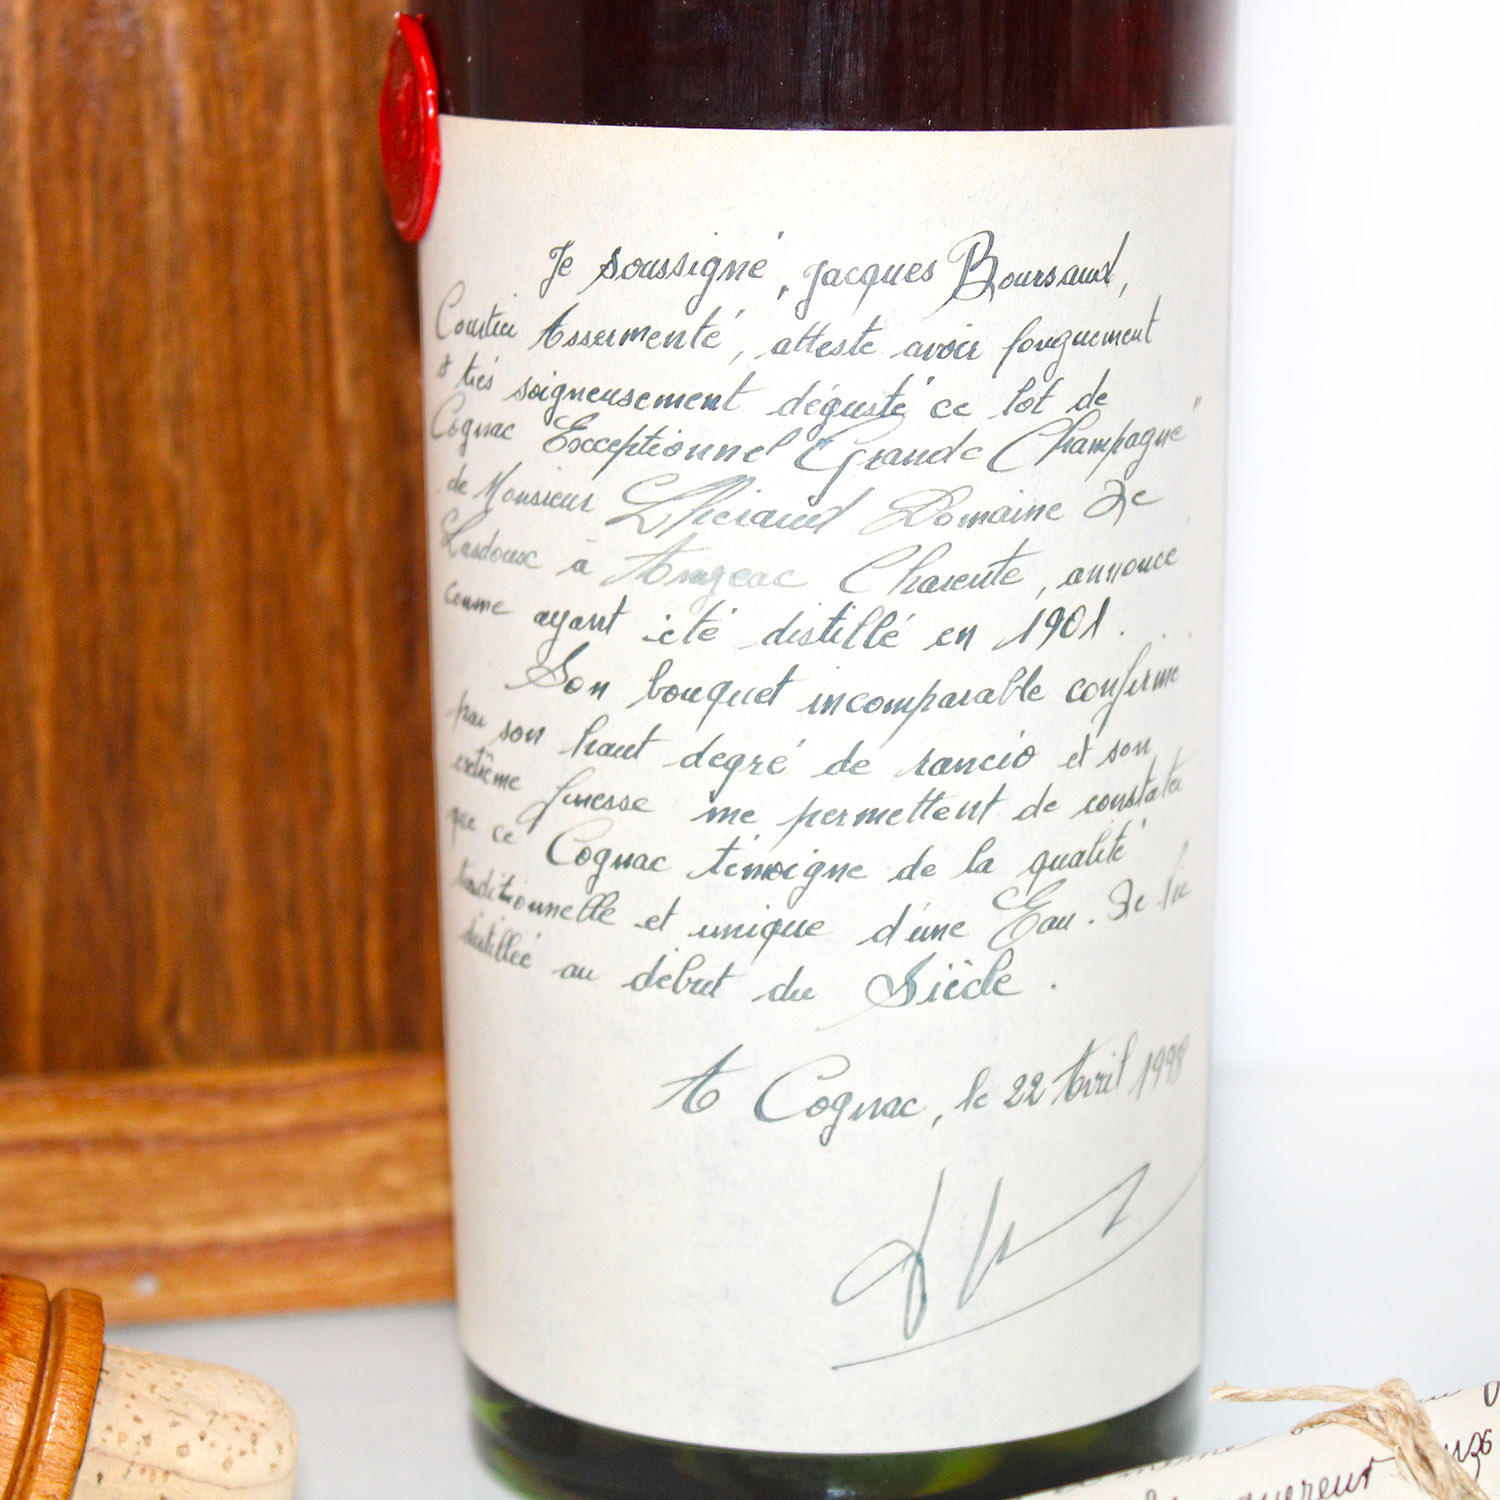 Je soussigné, Jacques Boursaud,
Courtier Assermenté, atteste avoir longuement
& très soigneusement dégusté ce lot de
Cognac Exceptionnel "Grande Champagne"
de Monsieur Lhéraud Domaine De
Lasdoux à Angeac Charente, annoncé
comme ayant été distillé en 1901.
Son bouquet incomparable confirmé
par son haut degré de rancio et son
extrême finesse me permettent de constater
que ce Cognac témoigne de la qualité
traditionnelle et unique d'une Eau-De-Vie
distillée au début du Siècle.
A Cognac, le 22 Avril 1998